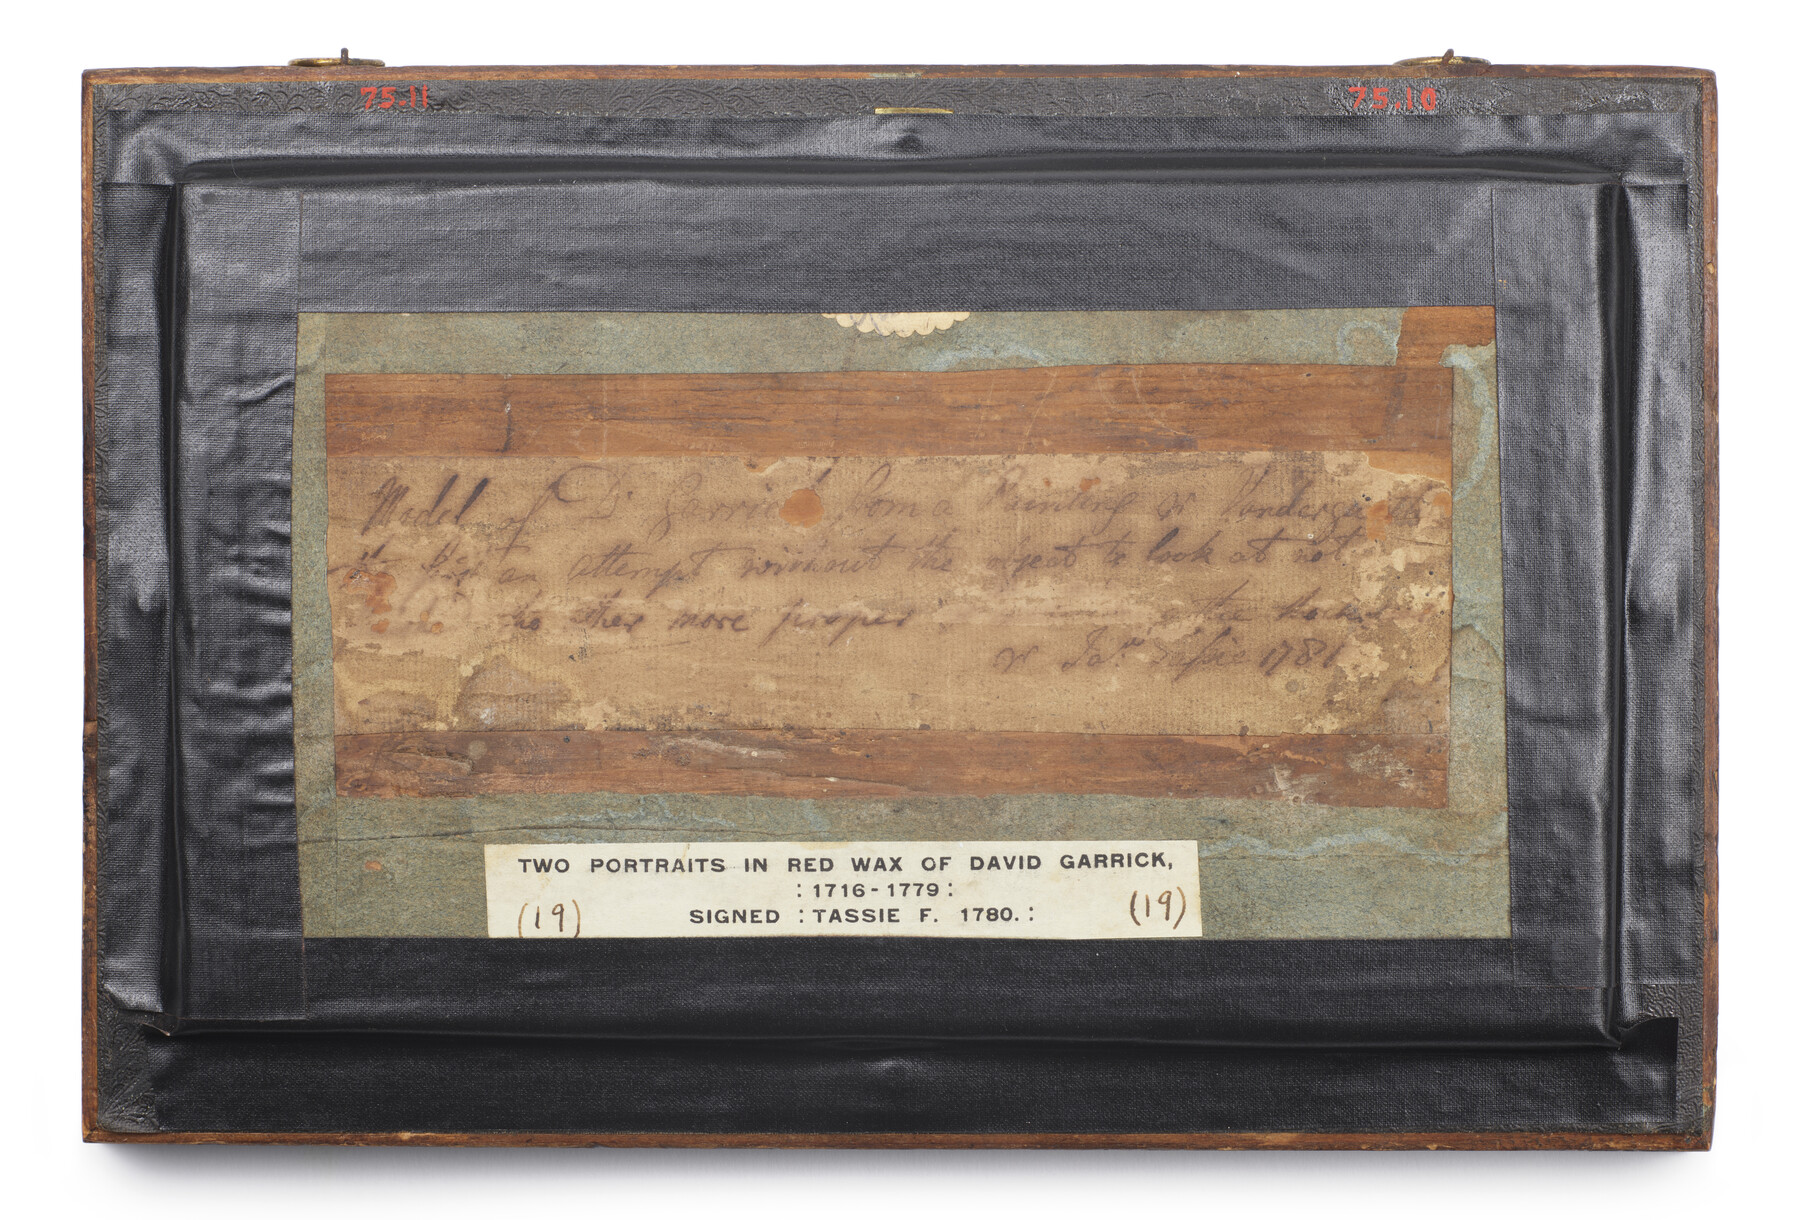 75.11
75.10
Model of D Garrick from a Painting Vandergu
an attempt without the object to look at not
the other more proper the
Jas. Tassie 1781
TWO PORTRAITS IN RED WAX OF DAVID GARRICK,
: 1716-1779 :
(19) SIGNED : TASSIE F. 1780. : (19)